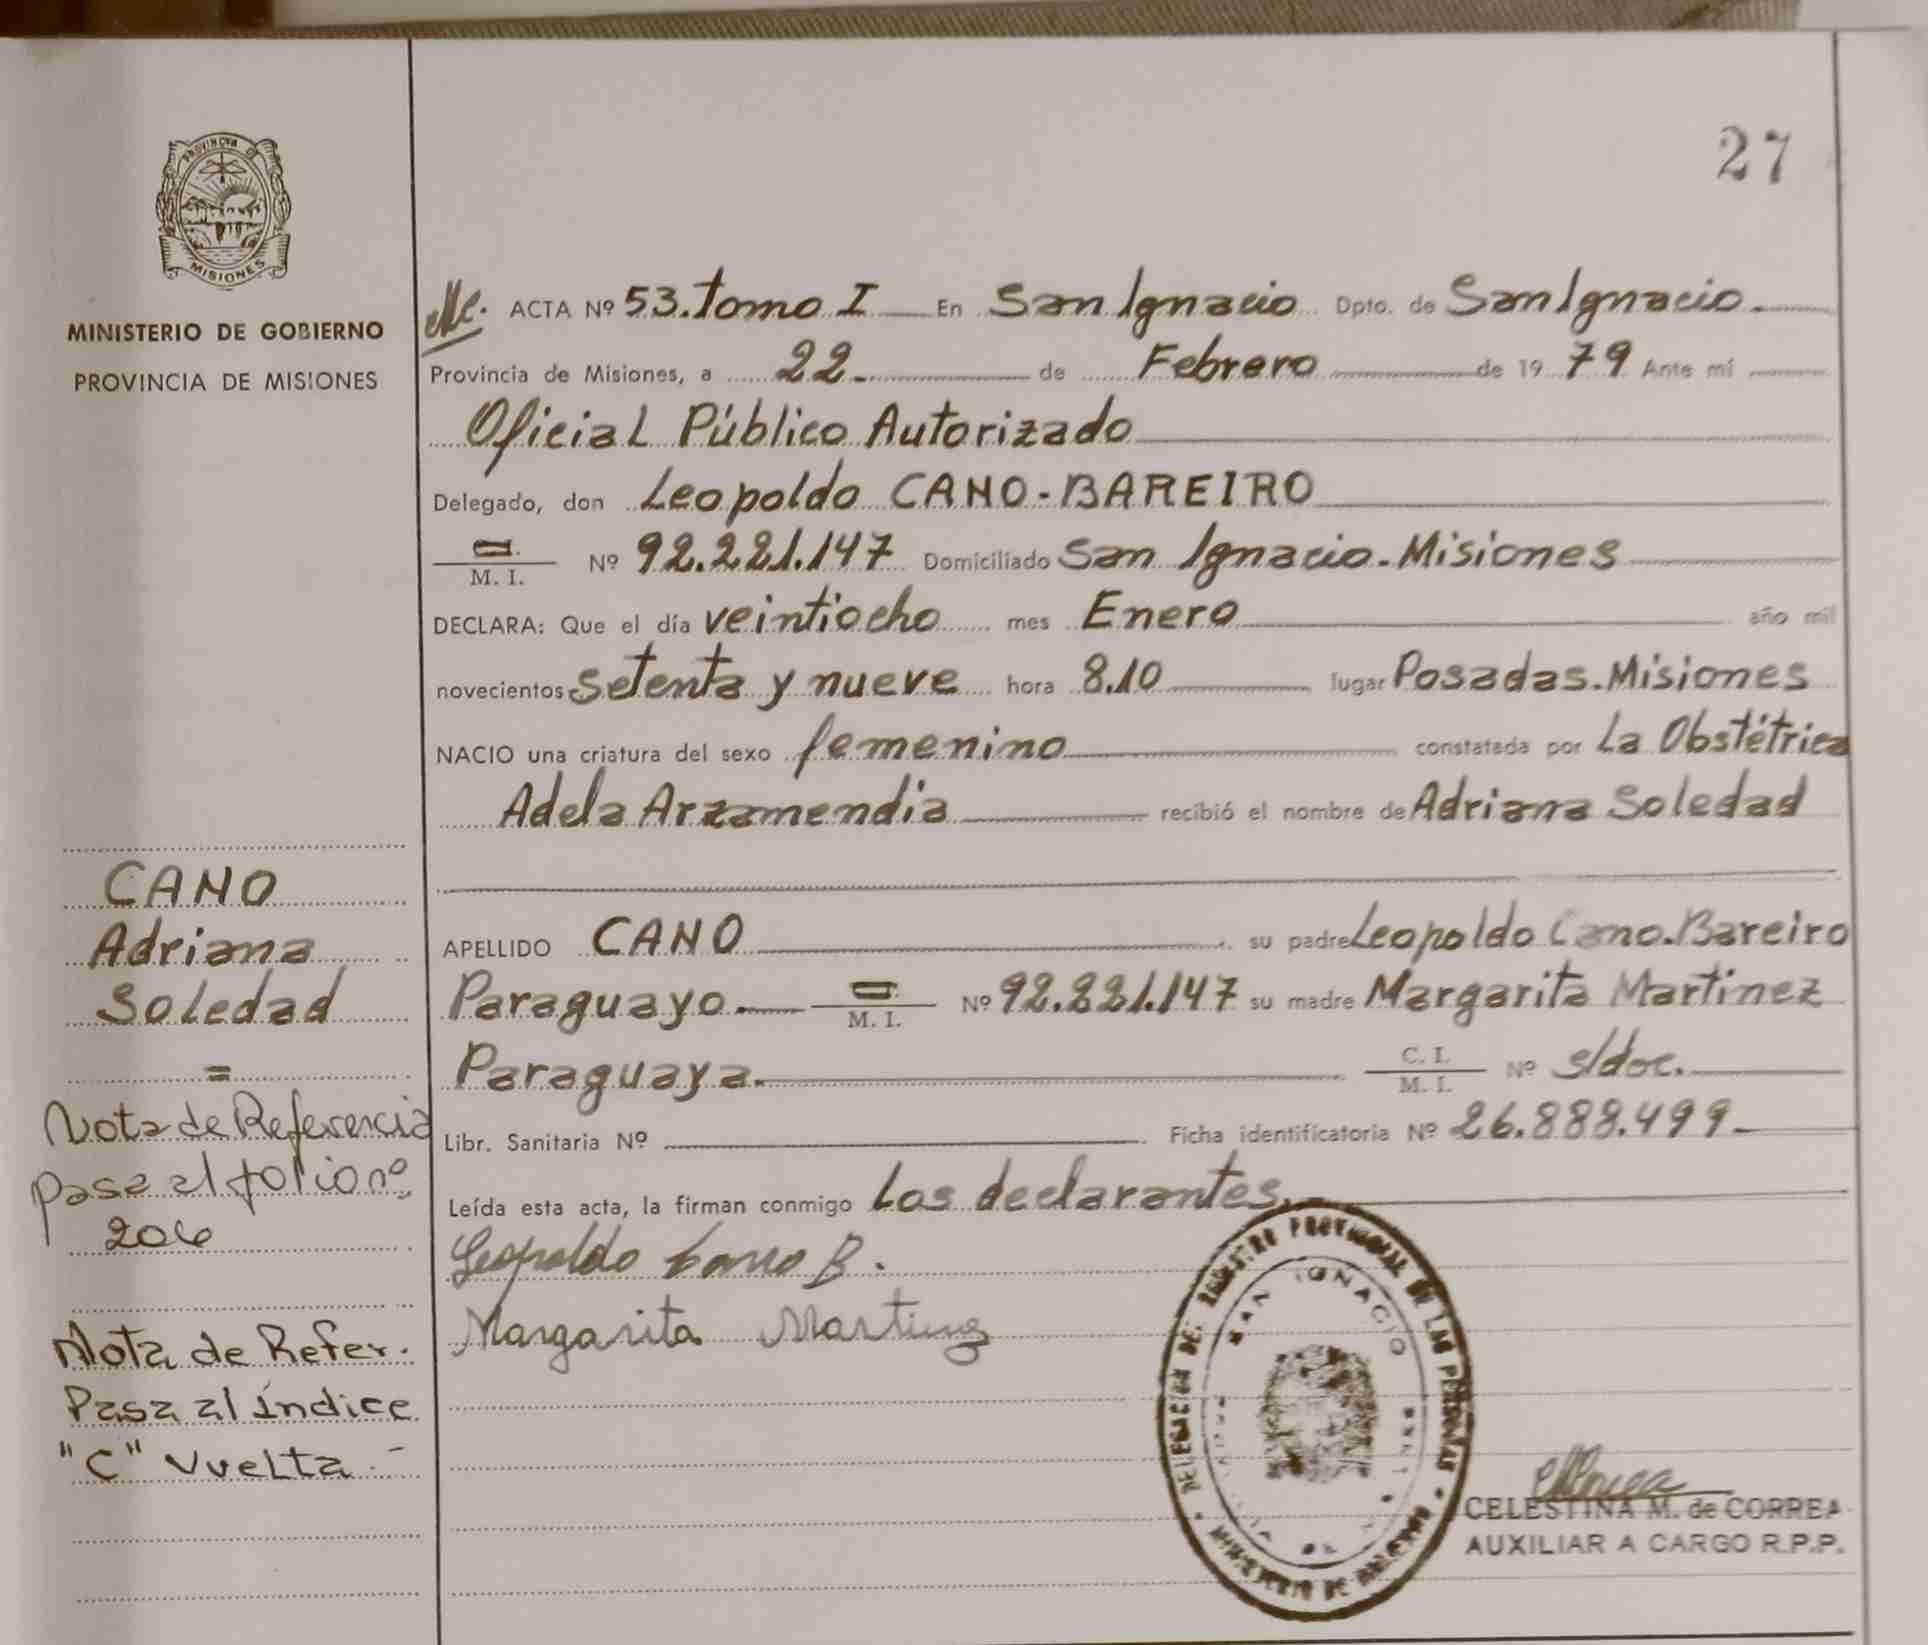 27
PROVINCIA DE
MISIONES
MINISTERIO DE GOBIERNO
PROVINCIA DE MISIONES
ACTA Nº 53. Tomo I En San Ignacio Dpto. de San Ignacio.
Provincia de Misiones, a 22. de Febrero de 19 79 Ante mí
Oficial Público Autorizado
Delegado, don Leopoldo CANO-BAREIRO
M. I. Nº 92.221.147 Domiciliado San Ignacio. Misiones
DECLARA: Que el día veintiocho mes Enero año mil
novecientos setenta y nueve hora 8.10 lugar Posadas. Misiones
NACIO una criatura del sexo femenino constatada por La Obstétrica
Adela Arzamendia recibió el nombre de Adriana Soledad
APELLIDO CANO su padre Leopoldo Cano. Bareiro
Paraguayo. M. I. Nº 92.221.147 su madre Margarita Martinez
Paraguaya. C. I. M. I. Nº s/doc.
Libr. Sanitaria Nº Ficha identificatoria Nº 26.888.499
Leída esta acta, la firman conmigo Los declarantes.
Leopoldo Cano B.
Margarita Martinez
CANO
Adriana
Soledad
=
Nota de Referencia
pasa al folio nº
206
Nota de Refer.
Pasa al índice
"C" Vuelta -
DELEGACION DEL REGISTRO PROVINCIAL DE LAS PERSONAS
MINISTERIO DE GOBIERNO
SAN IGNACIO
CELESTINA M. de CORREA
AUXILIAR A CARGO R.P.P.